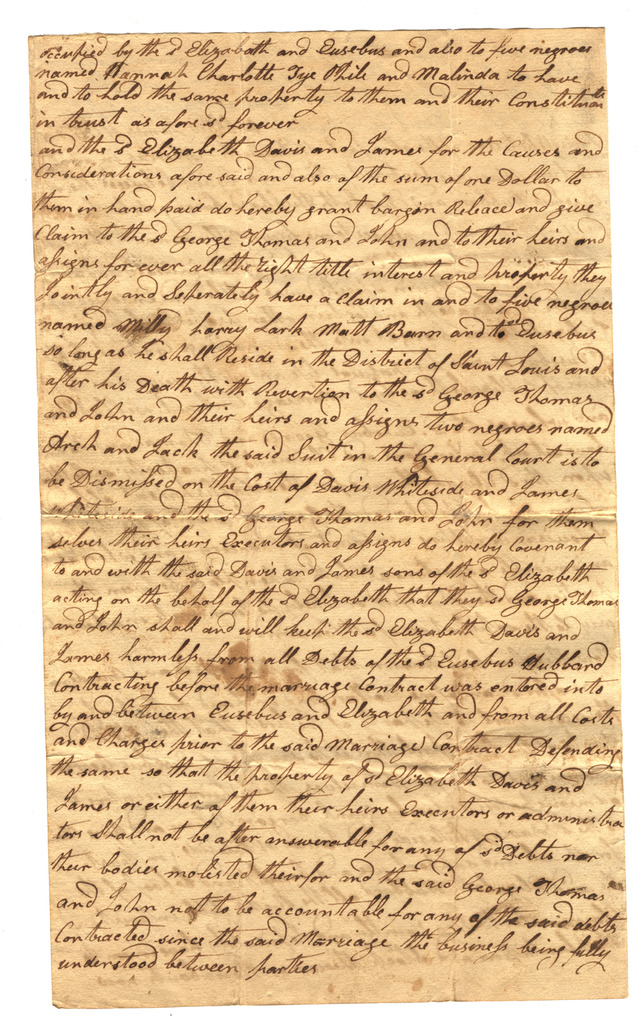 occupied by the sd Elizabath and Eusebus and also to five negroes
named Hannah Charlotte Tye Phile and Malinda to have
and to hold the same property to them and their Constituants
in trust as afore sd forever
and the sd Elizabeth Davis and James for the Causes and
Considerations afore said and also of the sum of one Dollar to
them in hand paid do hereby grant bargon Releace and give
Claim to the sd George Thomas and John and to their heirs and
assigns for ever all the right title interest and property they
Jointly and Seperately have a Claim in and to five negroes
named Milly harry Lark Matt Burn and to sd Eusebus
so long as he shall Reside in the District of Saint Louis and
after his Death with Revertion to the sd George Thomas
and John and their heirs and assigns two negroes named
Arch and Jack the said Suit in the General Court is to
be Dismissed on the Cost of Davis Whiteside and James
Whiteside and the sd George Thomas and John for them
selves their heirs Executors and assigns do hereby Covenant
to and with the said Davis and James sons of the sd Elizabeth
acting on the behalf of the sd Elizabeth that they sd George Thomas
and John shall and will keep the sd Elizabeth Davis and
James harmless from all Debts of the sd Eusebus Hubbard
Contracting before the marriage Contract was entored into
by and between Eusebus and Elizabeth and from all Costs
and Charges prior to the said Marriage Contract Defending
the same so that the property of sd Elizabeth Davis and
James or either of them their heirs Executors or administra
tors Shall not be after answerable for any of sd Debts nor
their bodies molested theirfor and the said George Thomas
and John not to be accountable for any of the said debts
Contracted since the said Marriage the business being fully
understood between parties